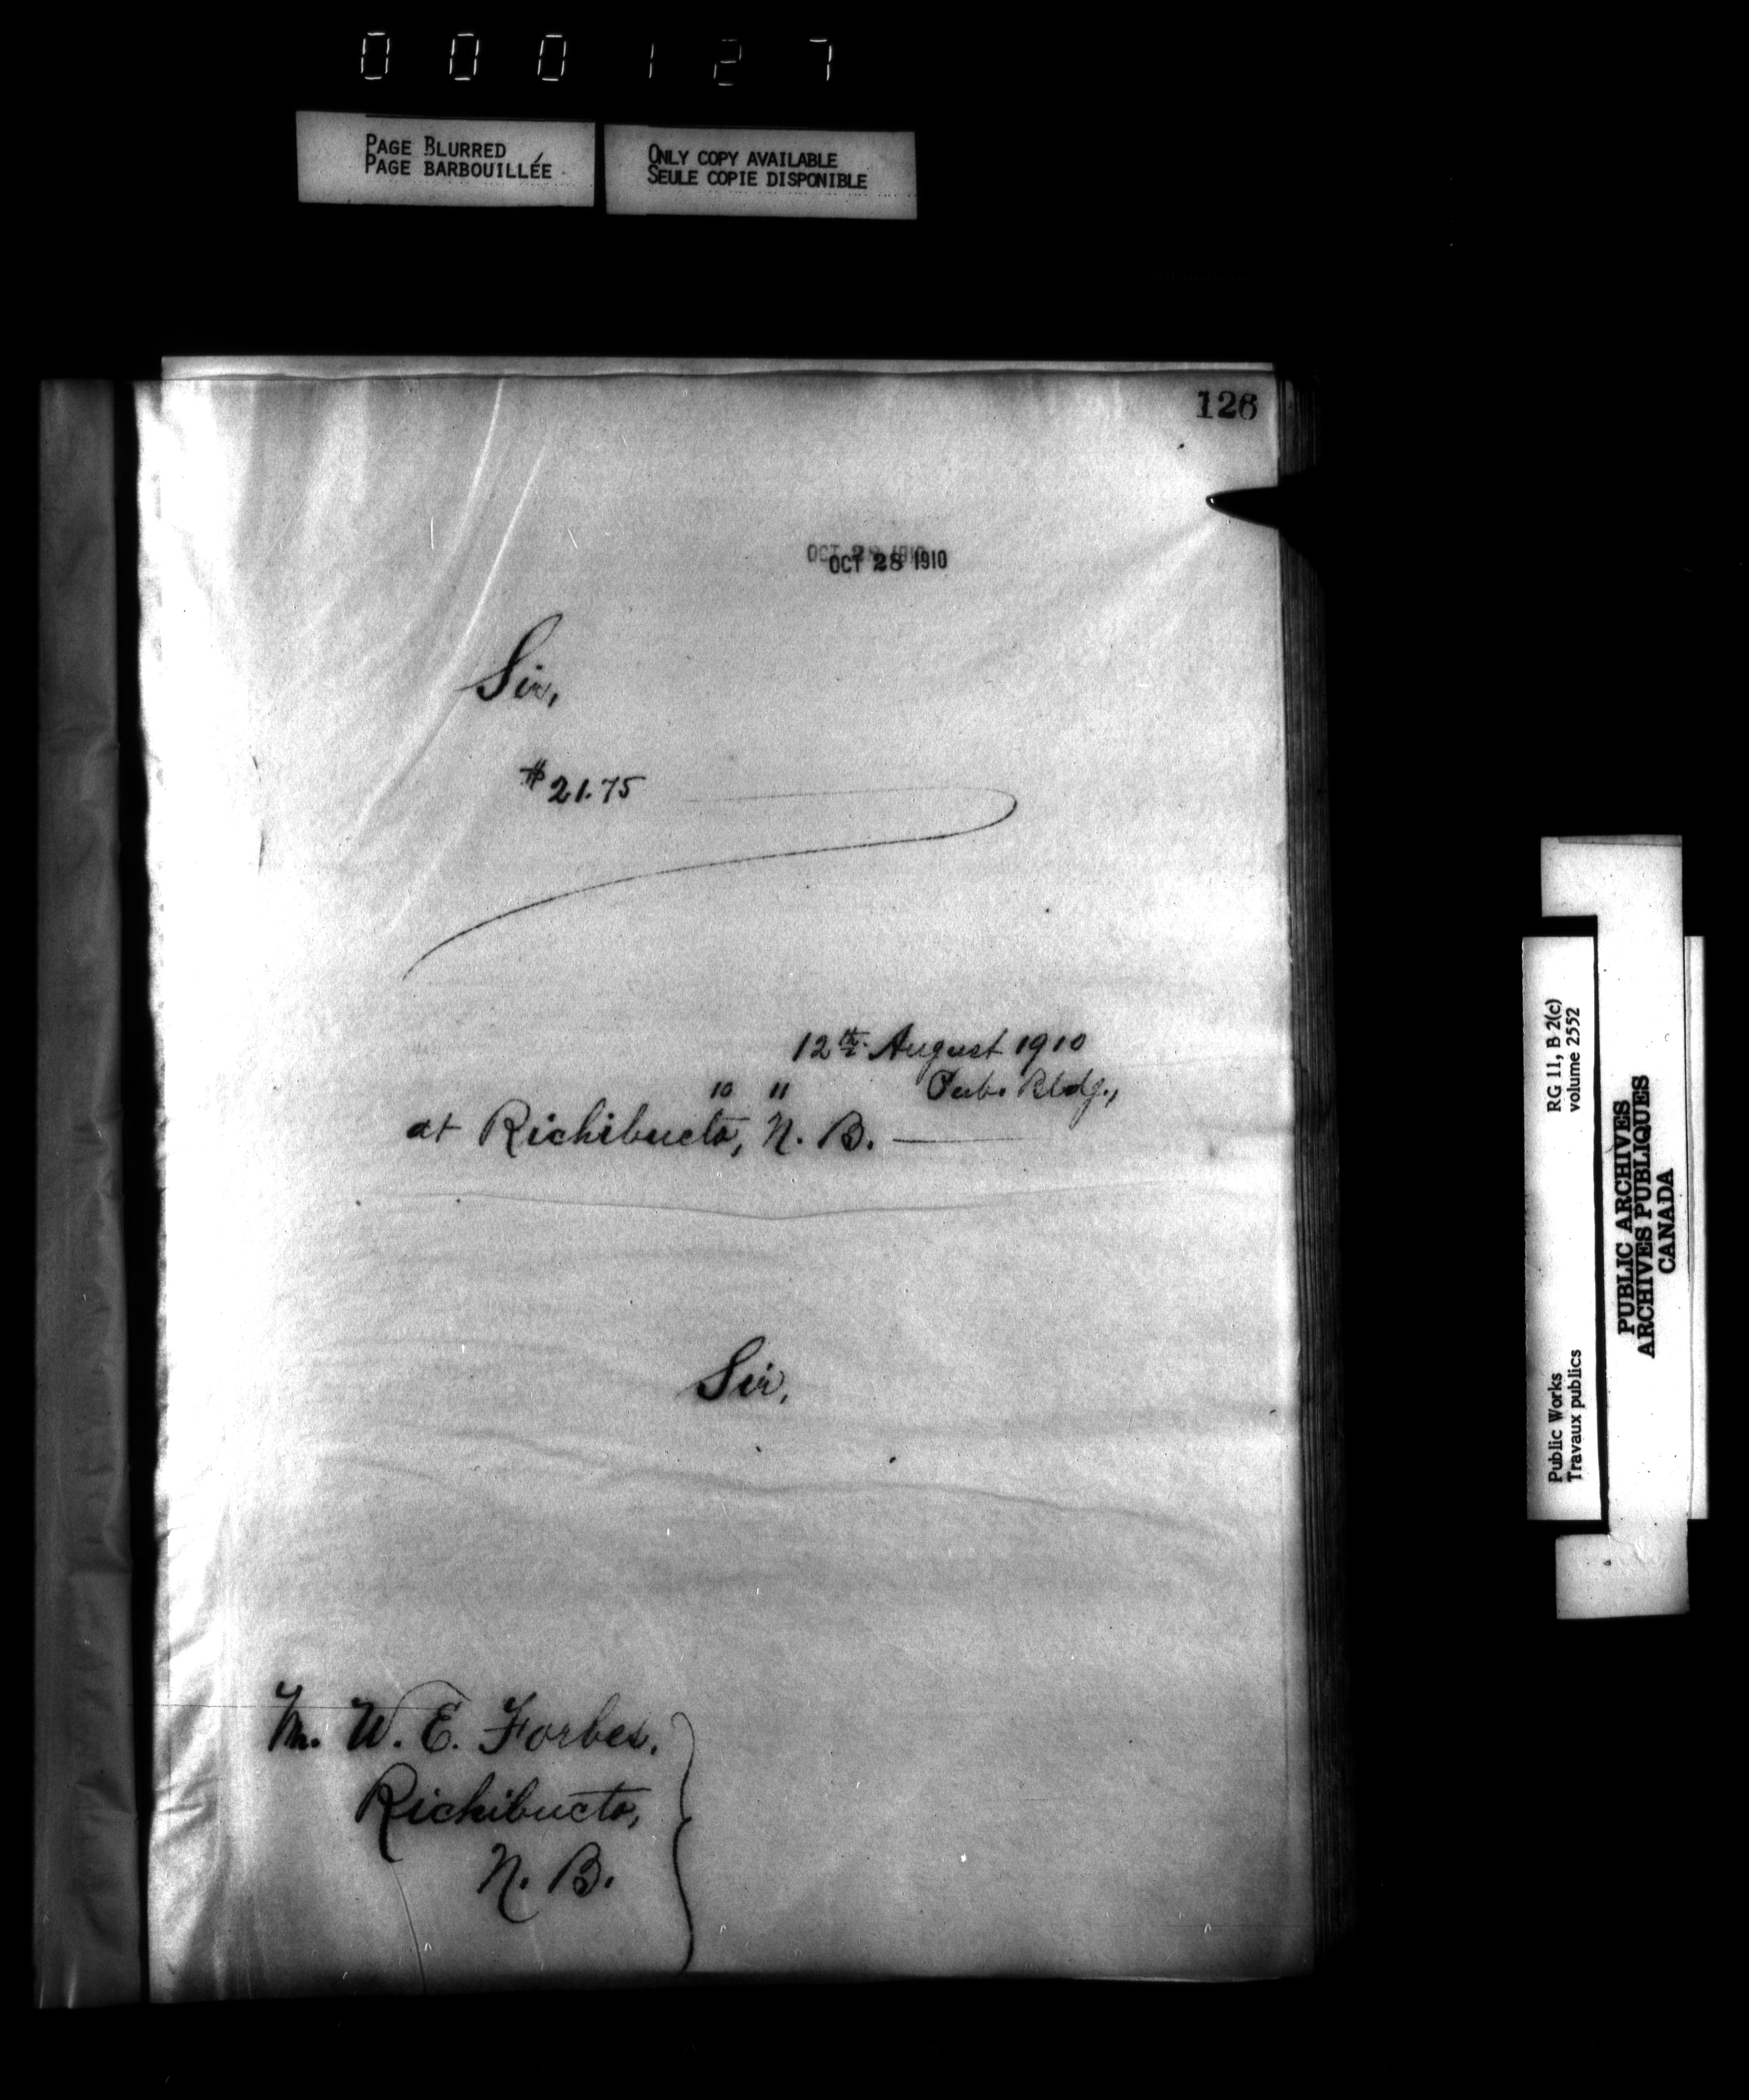 000127
PAGE BLURRED
PAGE BARBOUILLÉE
ONLY COPY AVAILABLE
SEULE COPIE DISPONIBLE
126
OCT 28 1910
OCT 28 1910
Sir,
$21.75
12th August 1910
10 11 Pub. Bldg.,
at Richibucto, N. B.
Sir,
M. W. E. Forbes,
Richibucto,
N. B.
Public Works
Travaux publics
RG 11, B 2(c)
volume 2552
PUBLIC ARCHIVES
ARCHIVES PUBLIQUES
CANADA